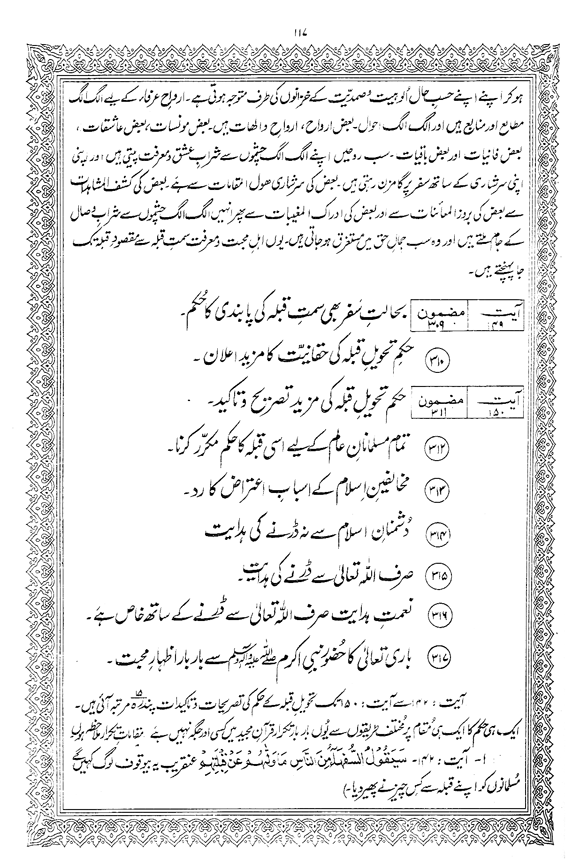 ۱۱۷
ہو کر اپنے اپنے حسبِ حال اُلوہیت و صمدیّت کے خزانوں کی طرف متوجہ ہوتی ہے۔ ارواحِ عرفاء کے لیے الگ الگ
مطالع اور منابع ہیں اور الگ الگ احوال۔ بعض ارواح، ارواح والھات ہیں۔ بعض مونسات، بعض عاشقات،
بعض فانیات اور بعض باقیات۔ سب روحیں اپنے الگ الگ چشموں سے شرابِ عشق و معرفت پیتی ہیں اور اپنی
اپنی سرشاری کے ساتھ سفر پر گامزن رہتی ہیں۔ بعض کی سرشاری حصول مقامات سے ہے۔ بعض کی کشف المشاہدات
سے بعض کی بروز المعائنات سے اور بعض کی ادراک المغیبات سے پھر انہیں الگ الگ چشموں سے شرابِ وصال
کے جام ملتے ہیں اور وہ سب جمالِ حق میں مستغرق ہو جاتی ہیں۔ یوں اہلِ محبت و معرفت سمتِ قبلہ سے مقصودِ قبلہ تک
جا پہنچتے ہیں۔
آیت ۱۴۹ مضمون ۳۰۹ بحالتِ سَفر بھی سمتِ قبلہ کی پابندی کا حُکم۔
۳۱۰ حکمِ تحویلِ قبلہ کی حقانیّت کا مزید اعلان۔
آیت ۱۵۰ مضمون ۳۱۱ حکم تحویلِ قبلہ کی مزید تصریح و تاکید۔
۳۱۲ تمام مسلمانانِ عالم کے لیے اسی قبلہ کا حکم مکرّر کرنا۔
۳۱۳ مخالفینِ اِسلام کے اسبابِ اعتراض کا رد۔
۳۱۴ دُشمنانِ اسلام سے نہ ڈرنے کی ہدایت
۳۱۵ صرف اللہ تعالیٰ سے ڈرنے کی ہدایت۔
۳۱۶ نعمتِ ہدایت صرف اللہ تعالیٰ سے ڈرنے کے ساتھ خاص ہے۔
۳۱۷ باری تعالیٰ کا حضُور نبی اکرم صلی اللہ علیہ وسلم سے بار بار اظہارِ محبت۔
آیت : ۱۴۲ سے آیت : ۱۵۰ تک تحویلِ قبلہ کے حکم کی تصریحات و تاکیدات پندرہ ۱۵ مرتبہ آئی ہیں۔
ایک ہی حکم کا ایک ہی مُقام پر مُختلف طریقوں سے یُوں بار بار تکرار قرآن مجید میں کسی اور جگہ نہیں ہے مقاماتِ تکرار ملاحظہ ہوں
۱۔ آیت : ۱۴۲۔ سَيَقُولُ السُّفَهَاءُ مِنَ النَّاسِ مَا وَلّٰهُمْ عَنْ قِبْلَتِهِمْ عنقریب یہ بیوقوف لوگ کہیں گے
مُسلمانوں کو اپنے قبلہ سے کس چیز نے پھیر دیا۔)